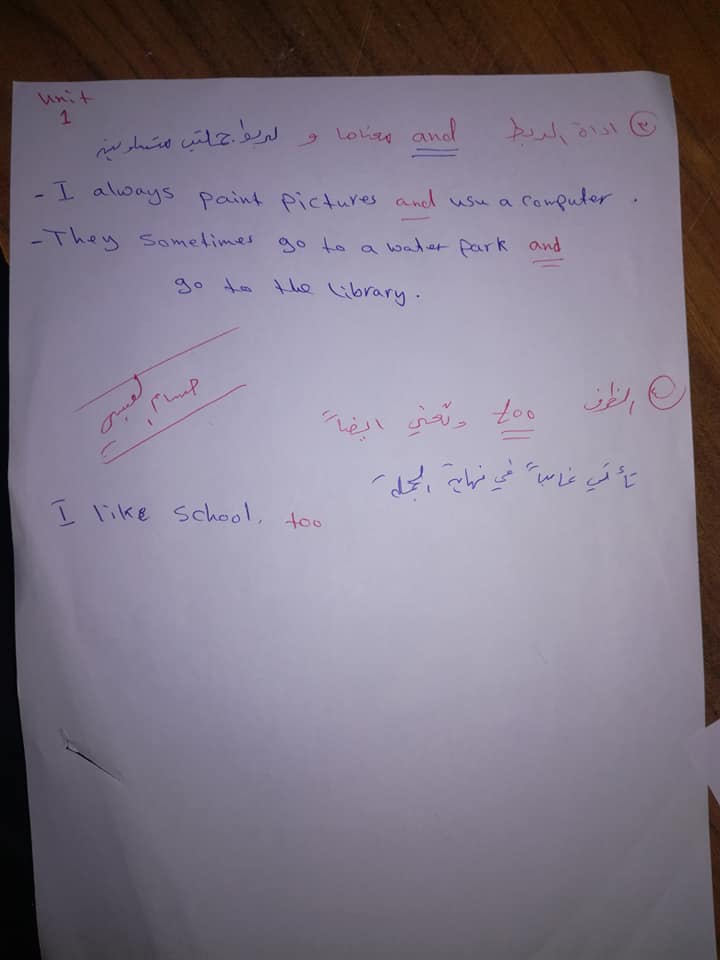 Unit
1
③ اداة الربط and معناها و لربط جملتين متساويتين
- I always paint pictures and usu a computer .
- They Sometimes go to a water park and
go to the library .
④ الظرف too وتعني ايضاً
تأتي غالباً في نهاية الجملة
حسام العبسي
I like school, too